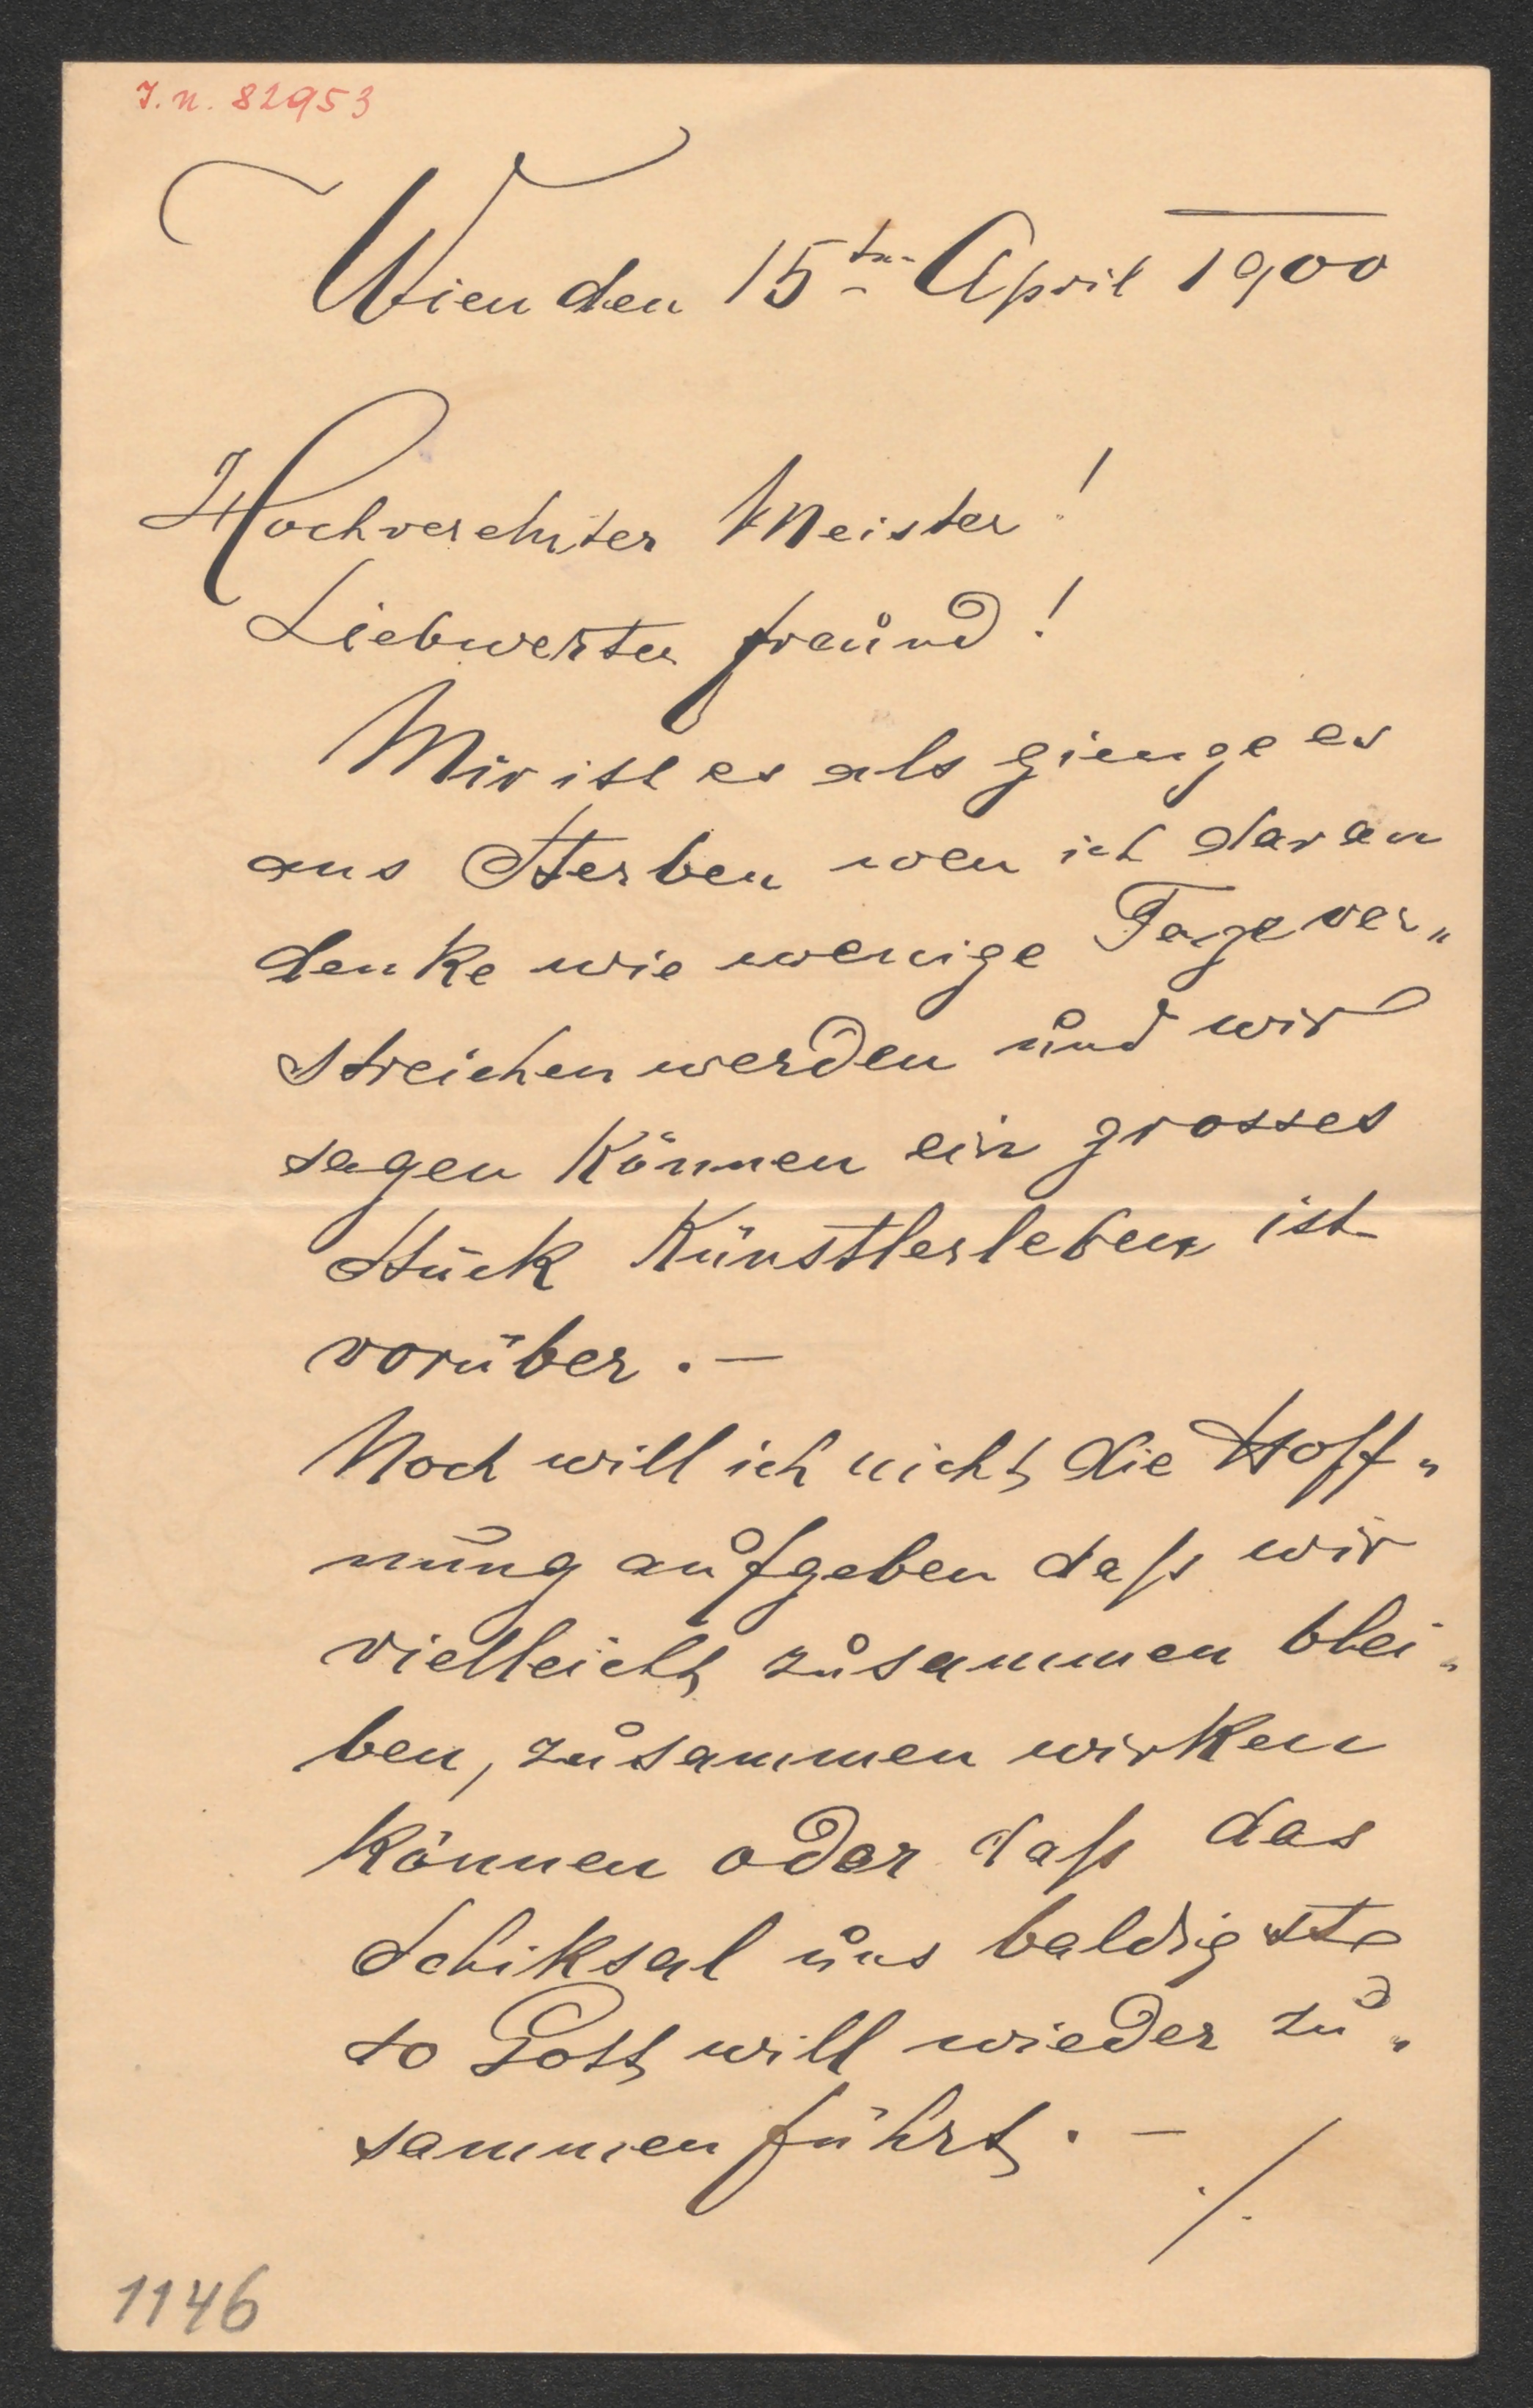 J.N. 82953
Wien den 15ten April 1900
Hochverehrter Meister!
Liebwerter Freund!
Mir ist es als gienge es
ans Sterben wen ich daran
denke wie wenige Tage ver„
streichen werden und wir
sagen können ein grosses
Stück Künstlerleben ist
vorüber. —
Noch will ich nicht die Hoff„
nung aufgeben daß wir
vielleicht zusammen blei„
ben, zusammen wirken
können oder daß das
Schiksal uns baldigst
so Gott will wieder zu„
sammen führt. —
./.
1146